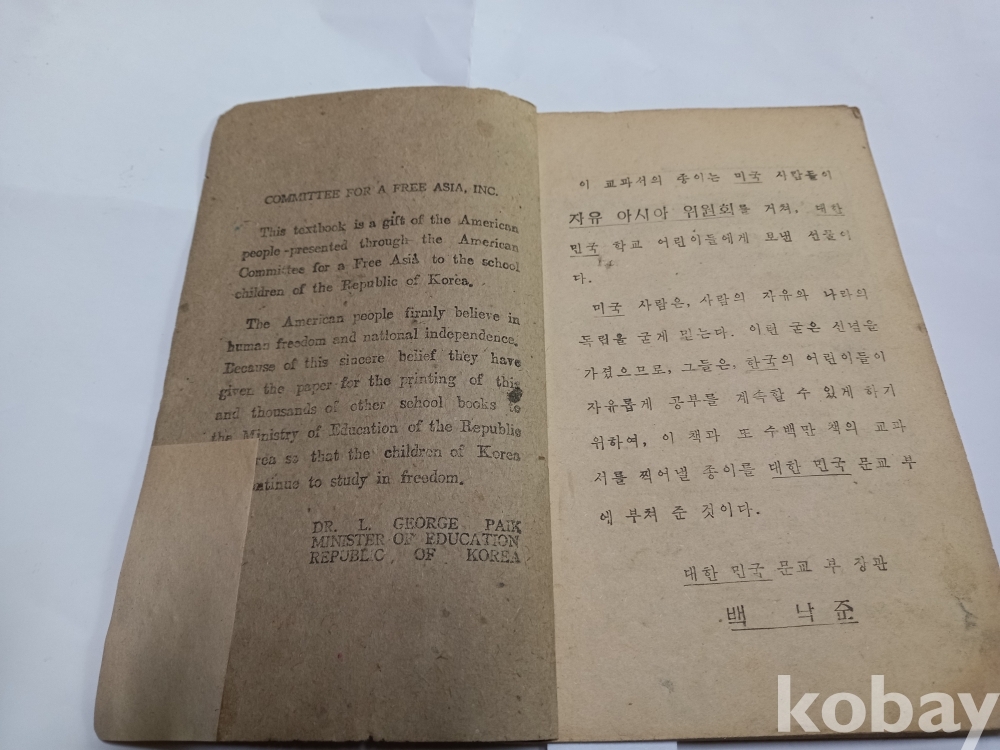 COMMITTEE FOR A FREE ASIA, INC.
This textbook is a gift of the American
people presented through the American
Committee for a Free Asia to the school
children of the Republic of Korea.
The American people firmly believe in
human freedom and national independence.
Because of this sincere belief they have
given the paper for the printing of this
and thousands of other school books to
the Ministry of Education of the Republic
rea so that the children of Korea
ntinue to study in freedom.
DR. L. GEORGE PAIK
MINISTER OF EDUCATION
REPUBLIC OF KOREA
이 교과서의 종이는 미국 사람들이
자유 아시아 위원회를 거쳐, 대한
민국 학교 어린이들에게 보낸 선물이
다.
미국 사람은, 사람의 자유와 나라의
독립을 굳게 믿는다. 이런 굳은 신념을
가졌으므로, 그들은, 한국의 어린이들이
자유롭게 공부를 계속할 수 있게 하기
위하여, 이 책과 또 수백만 책의 교과
서를 찍어낼 종이를 대한 민국 문교 부
에 부쳐 준 것이다.
대한 민국 문교 부 장관
백 낙 준
kobay